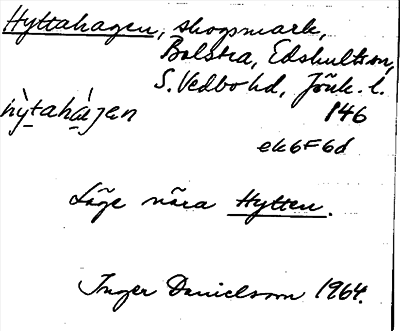 Hyttahagen, skogsmark,
Bolstra, Edshults sn,
S. Vedbo hd, Jönk. l.
146
ek6F6d
Läge nära Hytten.
Inger Danielsson 1964.